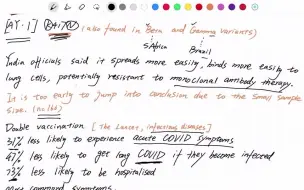 [AY.1] K417N (also found in Beta and Gamma variants)
S.Africa Brazil
India officials said it spreads more easily, binds more easily to
lung cells, potentially resistant to monoclonal antibody therapy.
It is too early to jump into conclusion due to the small sample
size. (n<200)
Double vaccination [The Lancet, infectious diseases]
31% less likely to experience acute COVID symptoms
47% less likely to get long COVID if they become infected
73% less likely to be hospitalised
symptoms